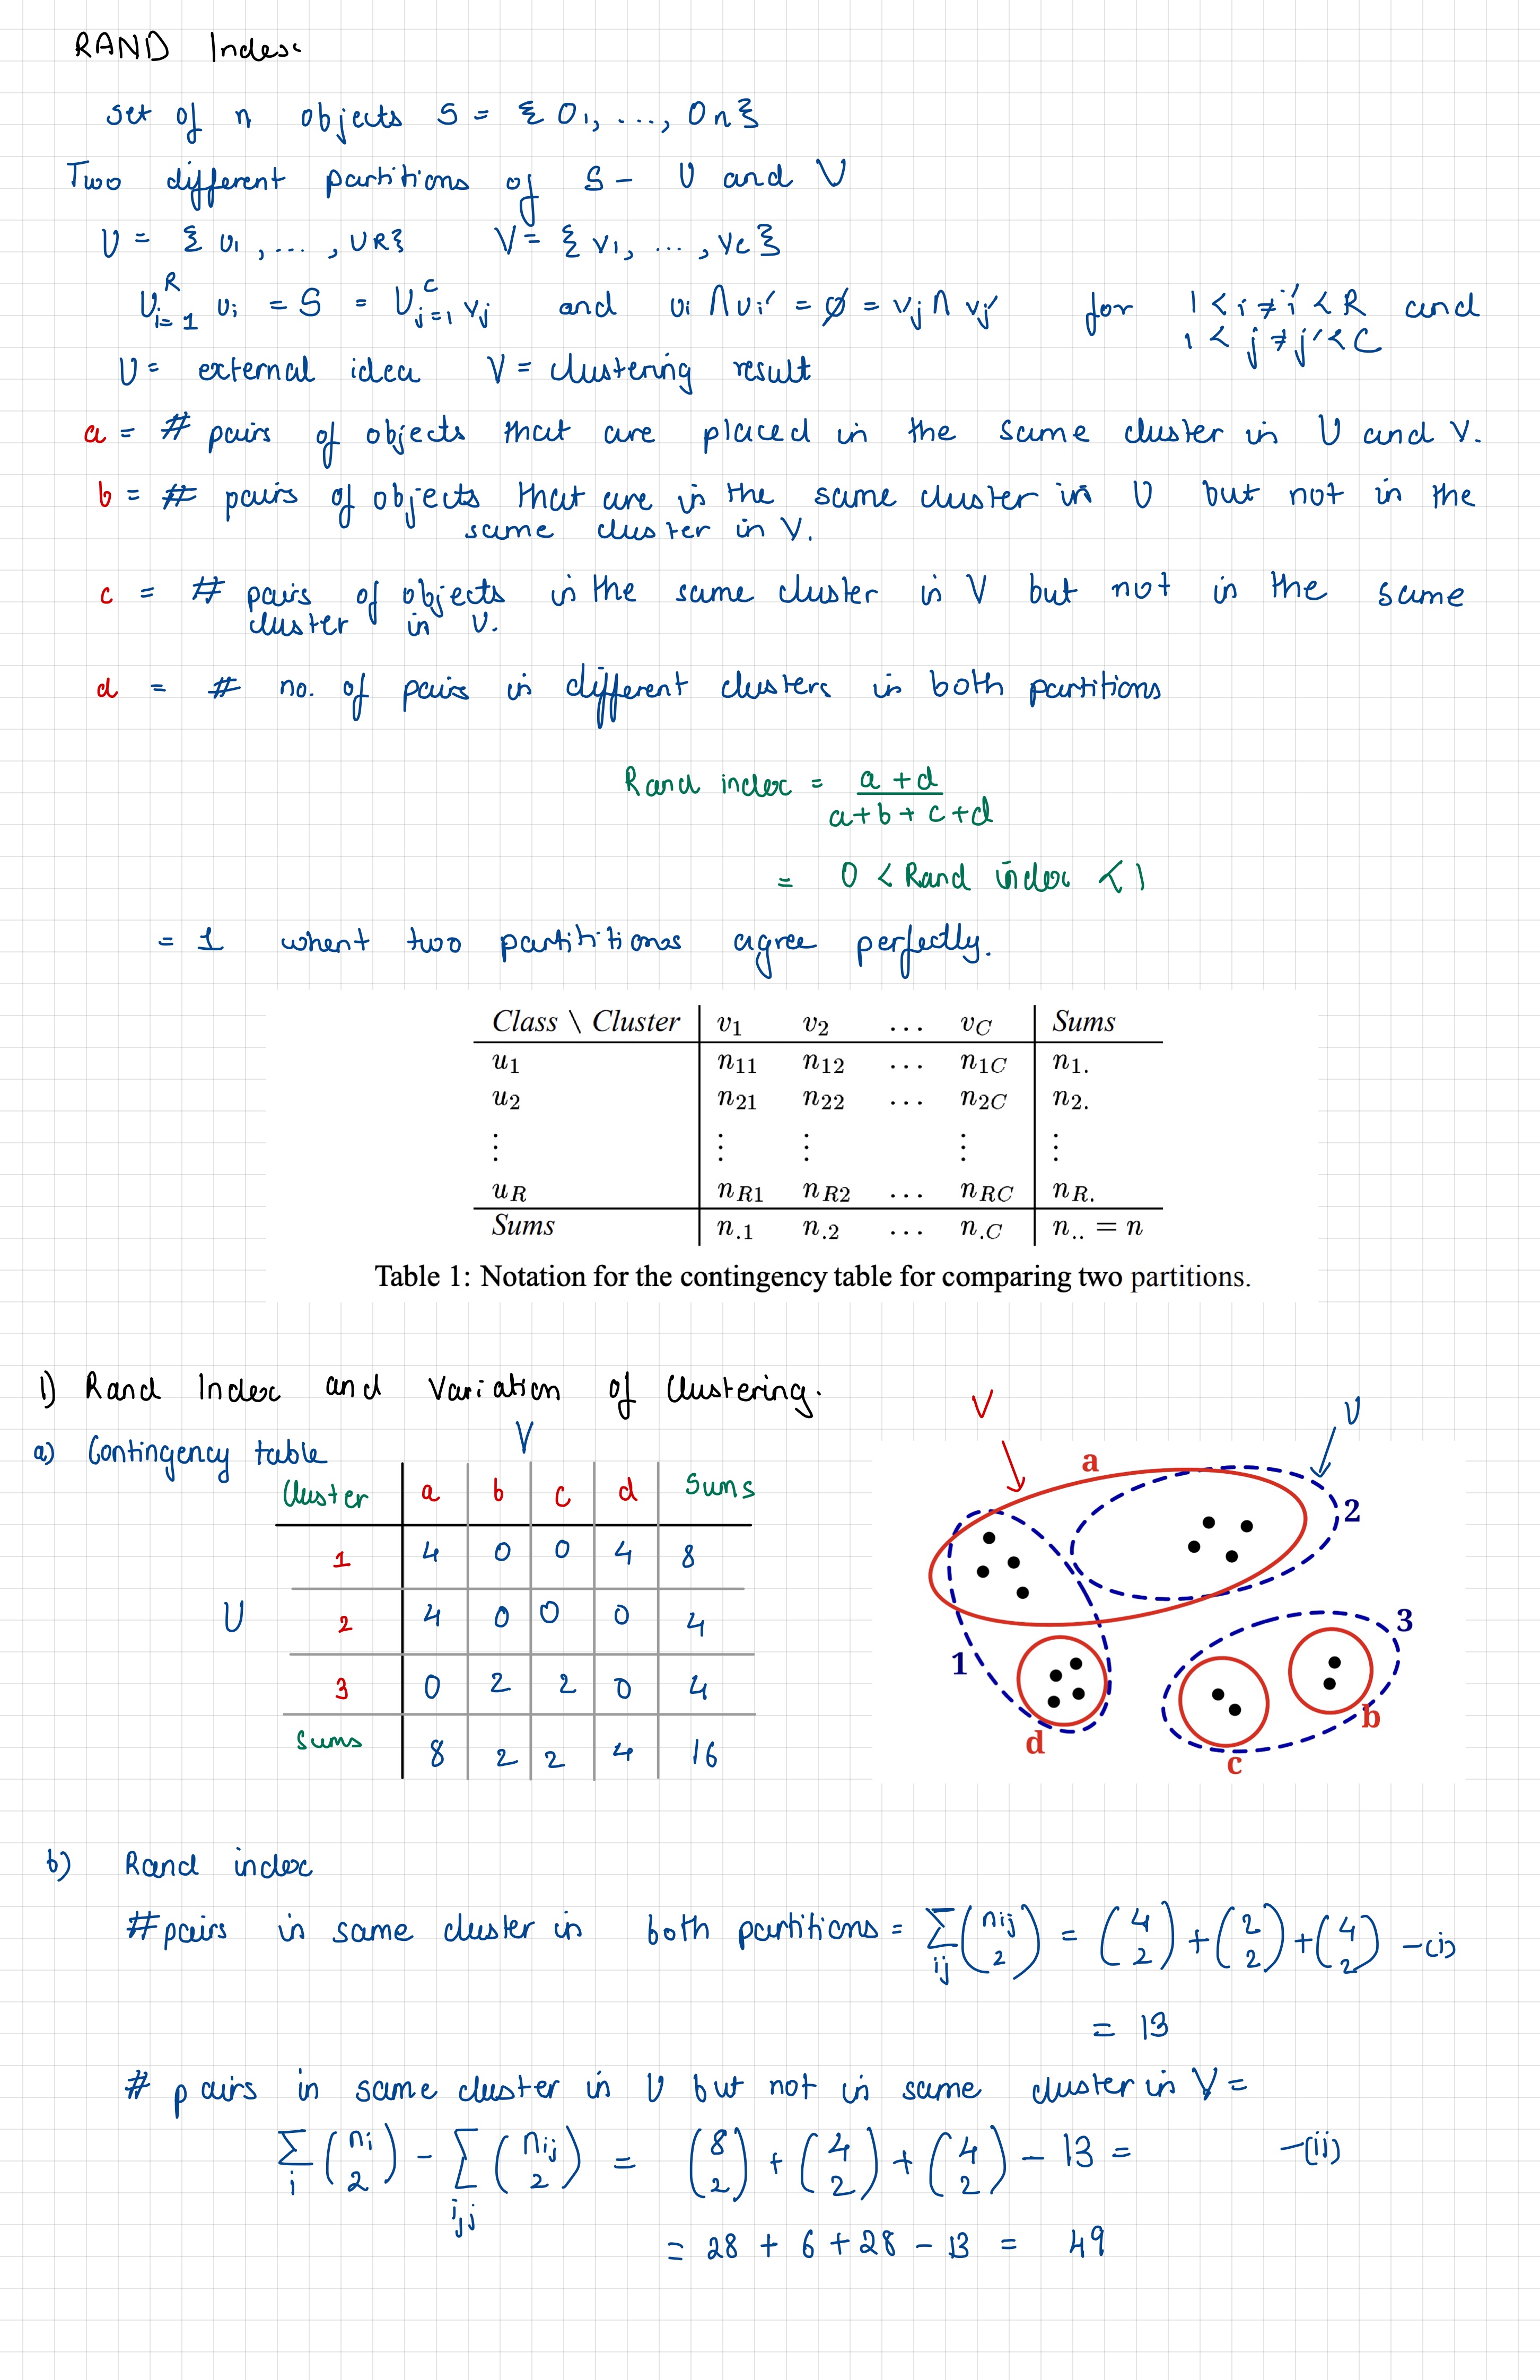 RAND Index
set of n objects S = { O1, ..., On}
Two different partitions of S - U and V
U = { u1, ..., UR} V = { v1, ..., vc}
U_{i=1}^{R} ui = S = U_{j=1}^{c} vj and ui ∩ ui' = ∅ = vj ∩ vj' for 1 < i ≠ i' < R and
1 < j ≠ j' < C
U = external idea V = clustering result
a = # pairs of objects that are placed in the same cluster in U and V.
b = # pairs of objects that are in the same cluster in U but not in the
same cluster in V.
c = # pairs of objects in the same cluster in V but not in the same
cluster in U.
d = # no. of pairs in different clusters in both partitions
Rand index = (a + d) / (a + b + c + d)
= 0 < Rand index < 1
= 1 whent two partititiones agree perfectly.
Class \ Cluster v1 v2 ... vC Sums
u1 n11 n12 ... n1C n1.
u2 n21 n22 ... n2C n2.
⋮ ⋮ ⋮ ⋮ ⋮
uR nR1 nR2 ... nRC nR.
Sums n.1 n.2 ... n.C n.. = n
Table 1: Notation for the contingency table for comparing two partitions.
1) Rand Index and Variation of Clustering.
a) Contingency table
V
Cluster a b c d Sums
1 4 0 0 4 8
U
2 4 0 0 0 4
3 0 2 2 0 4
Sums 8 2 2 4 16
V
U
a
2
3
1
b
d
c
b) Rand index
# pairs in same cluster in both partitions = Σij (nij 2) = (4 2) + (2 2) + (4 2) -(i)
= 13
# pairs in same cluster in U but not in same cluster in V =
Σi (ni 2) - Σi,j (nij 2) = (8 2) + (4 2) + (4 2) - 13 = -(ii)
= 28 + 6 + 28 - 13 = 49